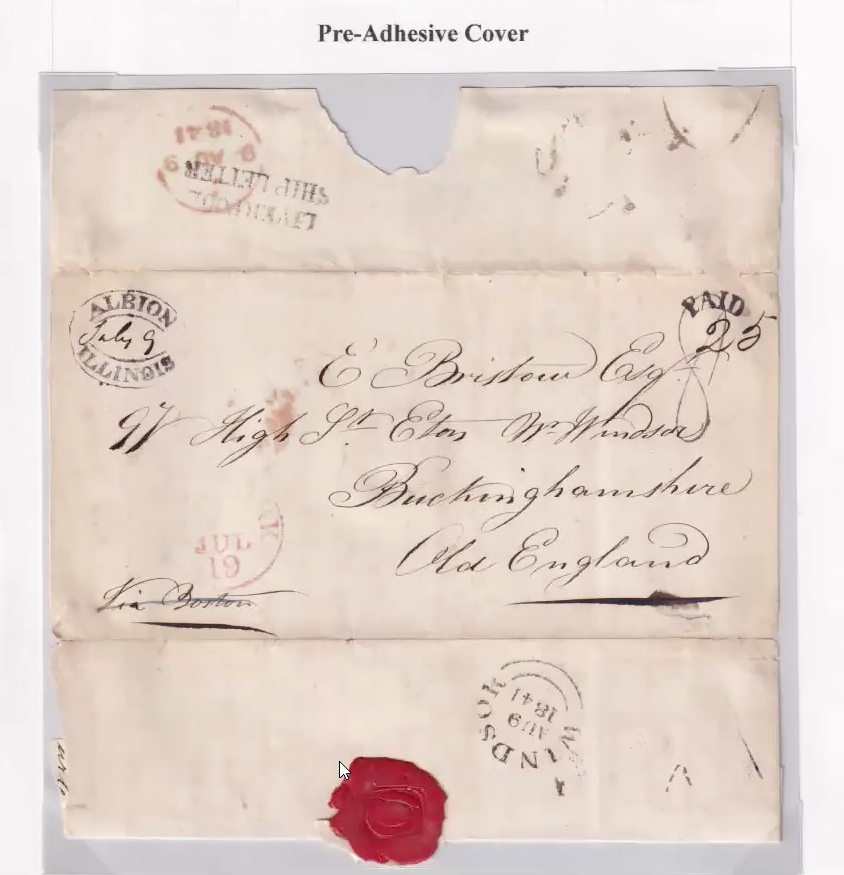 Pre-Adhesive Cover
1841
9 AU 9
LIVERPOOL
SHIP LETTER
ALBION
July 9
ILLINOIS
PAID
25
8
E Bristow Esqr
97 High St Eton Nr Windsor
Buckinghamshire
Old England
JUL
19
Via Boston
WINDSOR
AU 9
1841